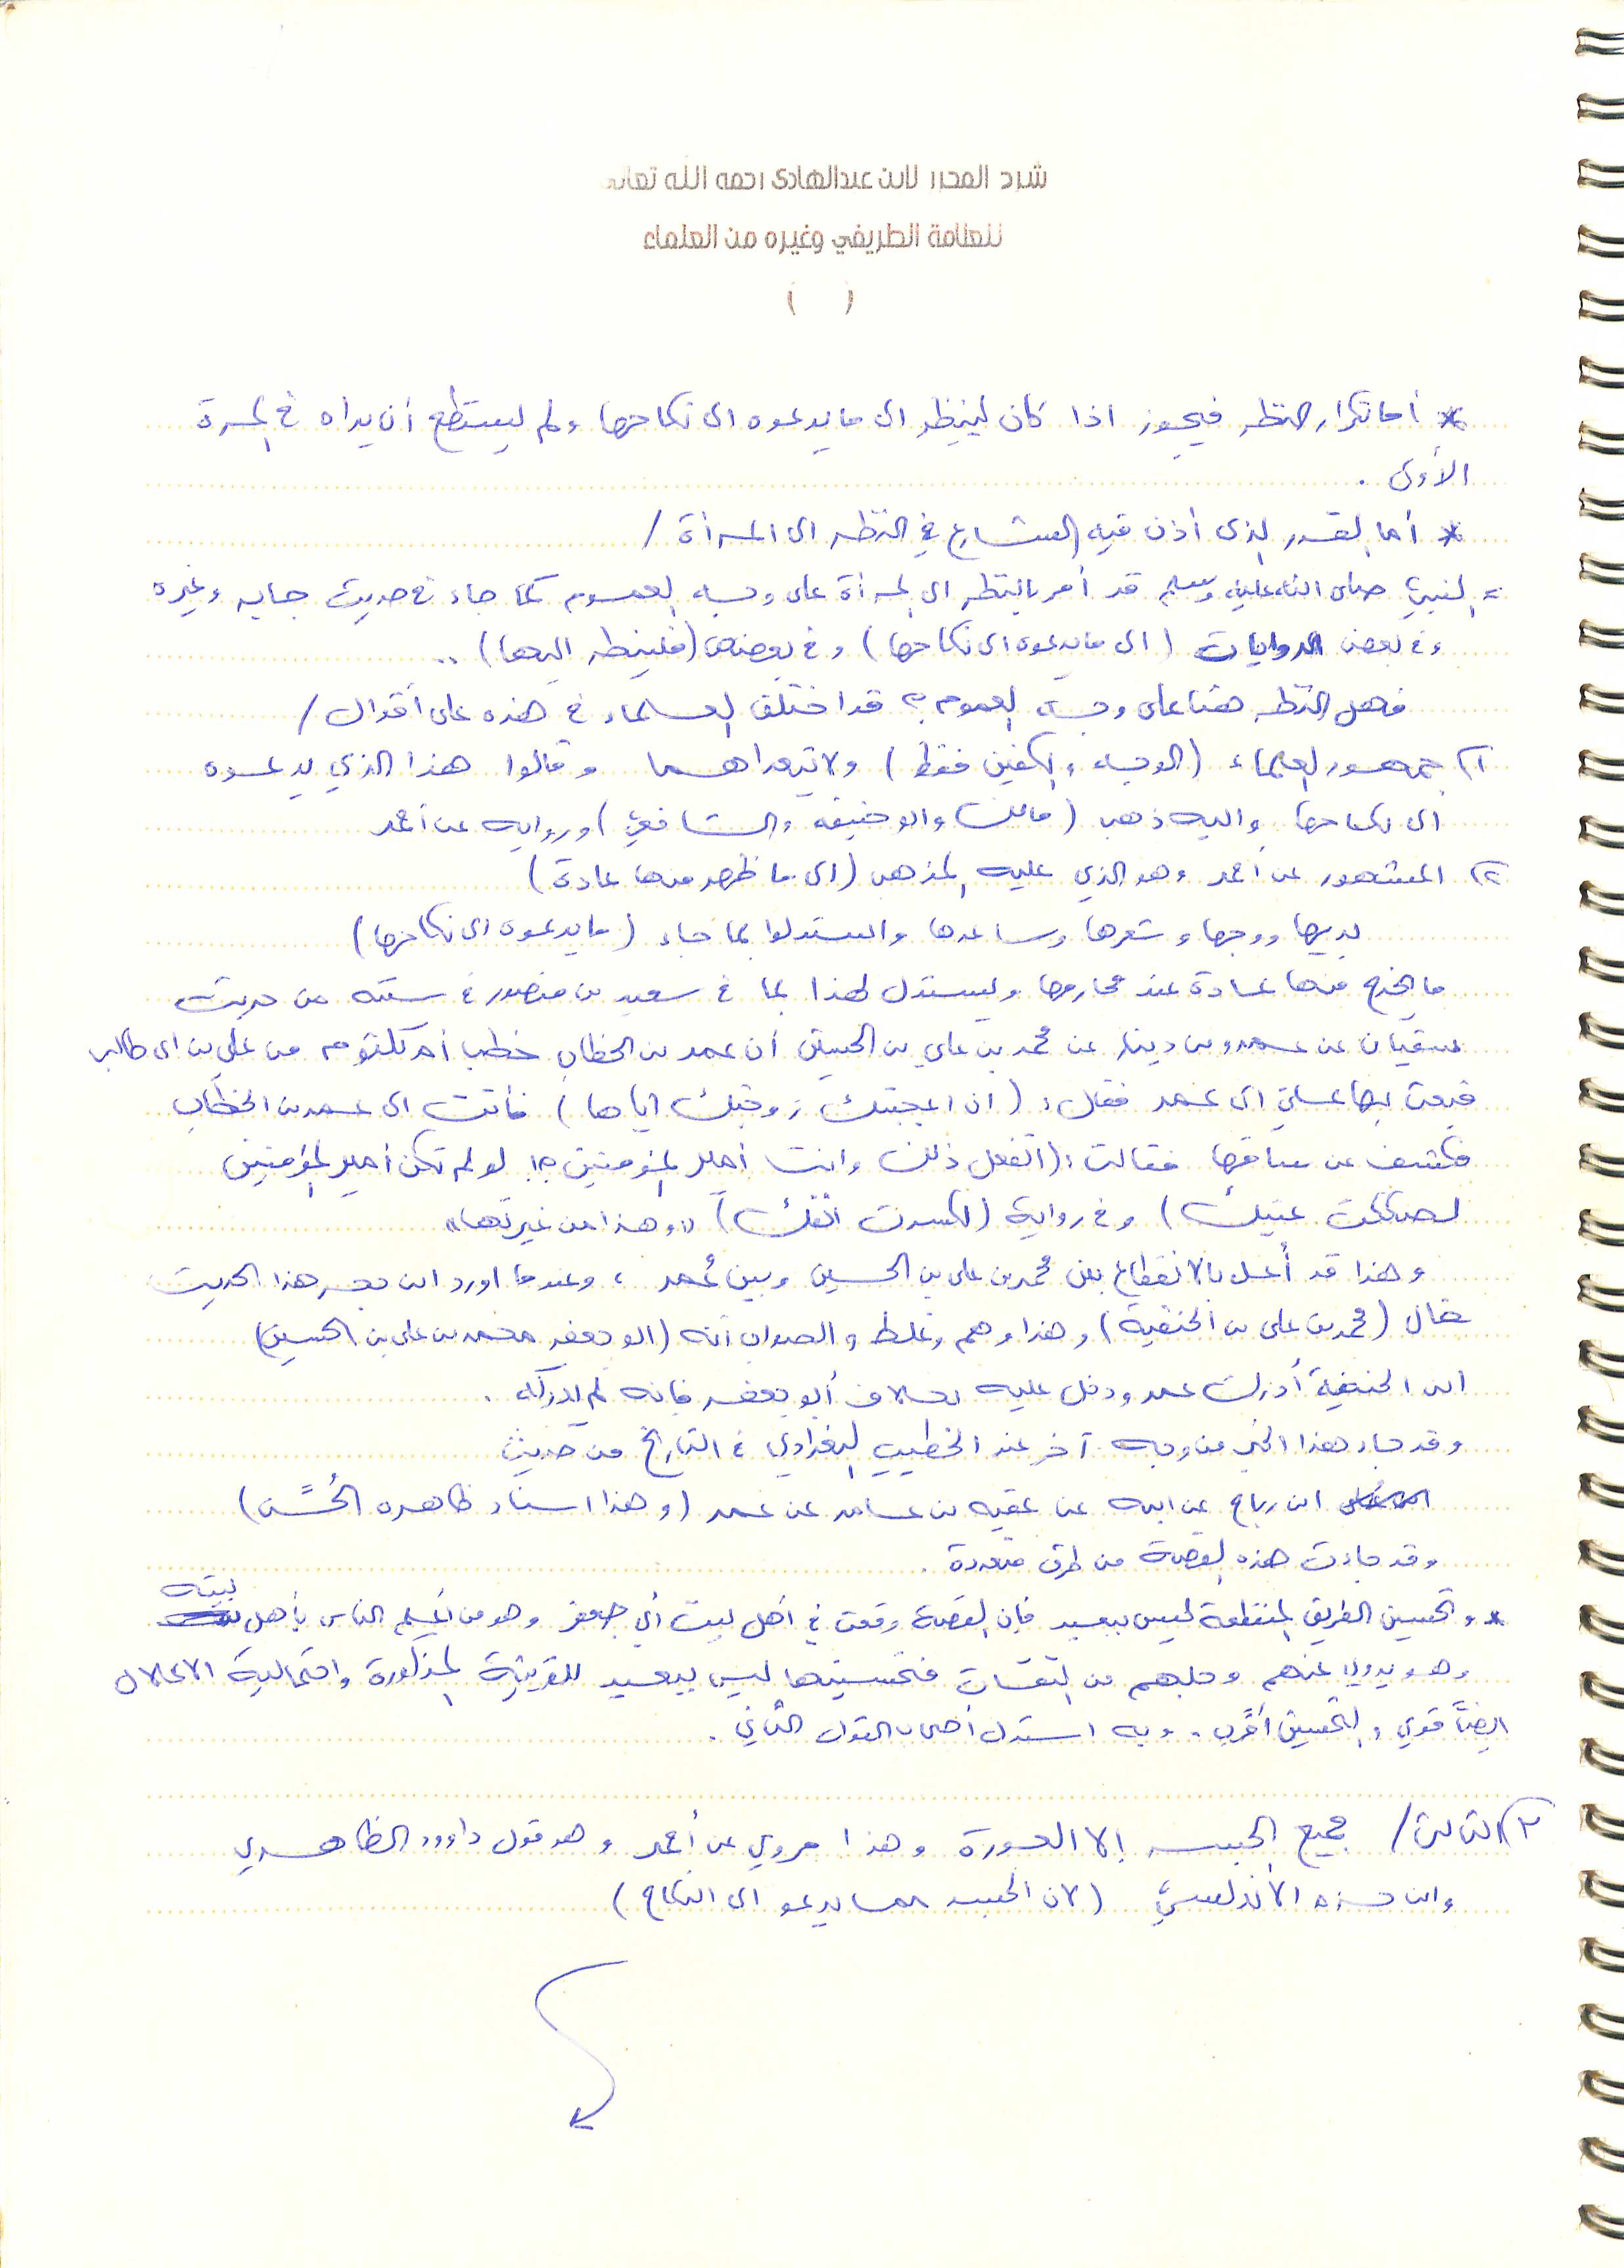 شرح المحرر لابن عبدالهادي رحمه الله تعالى
للعلامة الطريفي وغيره من العلماء
( )
* أما تكرار النظر فيجوز اذا كان لينظر الى ما يدعوه الى نكاحها ولم يستطع أن يراه في المرة
الأولى .
* أما القدر الذي أذن فيه الشارع في النظر الى المرأة /
= النبي صلى الله عليه وسلم قد أمر بالنظر الى المرأة على وجه العموم كما جاء في حديث جابر وغيره
وفي بعض الروايات (الى ما يدعوه الى نكاحها) وفي بعضها (فلينظر اليها) ..
فهل النظر هنا على وجه العموم ؟ قد اختلف العلماء في هذه على أقوال /
١) جمهور العلماء (الوجه والكفين فقط) ولا يتعداهما وقالوا هذا الذي يدعوه
الى نكاحها واليه ذهب (مالك وابو حنيفه والشافعي) وروايه عن أحمد
٢) المشهور عن أحمد وهو الذي عليه المذهب (الى ما ظهر منها عادة)
يديها ووجهها وشعرها وساعدها واستدلوا بما جاء (ما يدعوه الى نكاحها)
ما يخرج منها عادة عند محارمها ويستدل لهذا بما في سعيد بن منصور في سننه من حديث
سفيان عن عمرو بن دينار عن محمد بن علي بن الحسين أن عمر بن الخطاب خطب أم كلثوم من علي بن ابي طالب
فبعث بها علي الى عمر فقال : (ان اعجبتك زوجتك اياها) فأتت الى عمر بن الخطاب
فكشف عن ساقها فقالت : (اتفعل ذلك وانت أمير المؤمنين ؟! لو لم تكن أمير المؤمنين
لصككت عينيك) وفي رواية (لكسرت انفك) "وهذا من غيرتها"
وهذا قد أُعل بالانقطاع بين محمد بن علي بن الحسين وبين عُمر ، وعندما اورد ابن حجر هذا الحديث
قال (محمد بن علي بن الحنفية) وهذا وهم وغلط والصواب أنه (ابو جعفر محمد بن علي بن الحسين)
ابن الحنفية أدرك عمر ودخل عليه بخلاف أبو جعفر فإنه لم يدركه .
وقد جاء هذا الخبر من وجه آخر عند الخطيب البغدادي في التاريخ من حديث
ابن رباح عن ابيه عن عقبه بن عامر عن عمر (وهذا اسناد ظاهره الحُسْن)
وقد جاءت هذه القصة من طرق متعددة .
* وتحسين الطريق المنقطعة ليس ببعيد فإن القصة وقعت في أهل بيت أبي جعفر وهو من أعلم الناس بأهل بيته
وهو يروي عنهم وجلهم من الثقات فتحسينها ليس ببعيد للقرينة المذكورة واحتمالية الاعلال
ايضاً قوي والتحسين أقرب . وبه استدل أصحاب القول الثاني .
٣) الثالث / جميع الجسد إلا العورة وهذا مروي عن أحمد وهو قول داوود الظاهري
وابن حزم الأندلسي (لان الجسد مما يدعو الى النكاح)